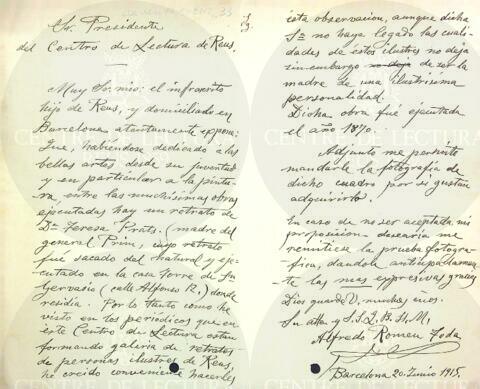 Sr. Presidente
del Centro de Lectura de Reus.
Muy Sr. mio: el infrascrito
hijo de Reus, y domiciliado en
Barcelona atentamente expone:
Que, habiéndose dedicado á las
bellas artes desde su juventud
y en particular a la pintu-
ra, entre las muchísimas obras
ejecutadas hay un retrato de
Dª Teresa Prats. (madre del
general Prim, cuyo retrato
fué sacado del natural y eje-
cutado en la casa torre de Sn
Gervasio (calle Alfonso 12,) donde
residia. Por lo tanto como he
visto en los periódicos que en
este Centro de Lectura estan
formando galeria de retratos
de personas ilustres de Reus,
he creido conveniente hacerles
ésta observacion, aunque dicha
Sª no haya legado las cuali-
dades de éstos ilustres no deja
sin embargo de ser la
madre de una ilustrísima
personalidad.
Dicha obra fué ejecutada
el año 1870.
Adjunto me permito
mandarle la fotografía de
dicho cuadro por si gustan
adquirirlo.
En caso de no ser aceptada mi
proposicion desearía me
remitiese la prueba fotogra-
fica, dandole anticipadamen-
te las mas expresivas gracias
Dios guarde V. muchos años.
Su atto. y S.S.Q.B.S.M,
Alfredo Romeu Toda
Barcelona 20. Junio 1915.
CENTRE DE LECTURA